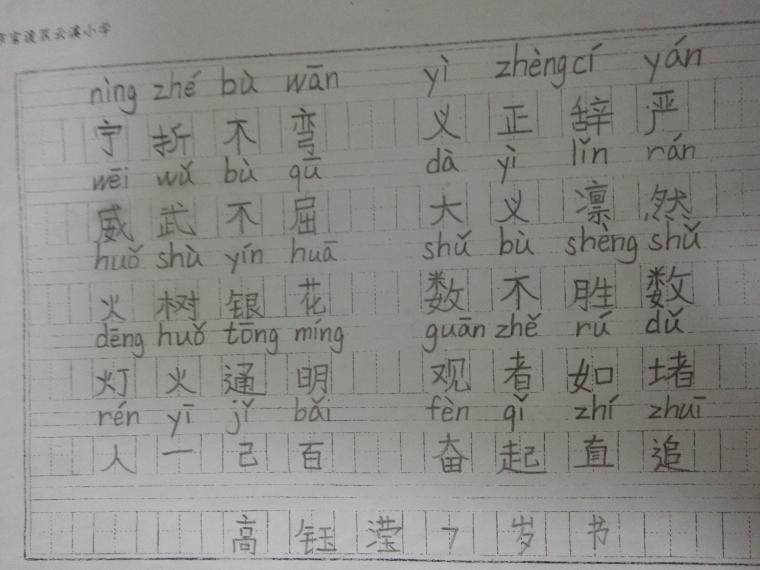 市官渡区云溪小学
nìng zhé bù wān yì zhèng cí yán
宁折不弯 义正辞严
wēi wǔ bù qū dà yì lǐn rán
威武不屈 大义凛然
huǒ shù yín huā shǔ bù shèng shǔ
火树银花 数不胜数
dēng huǒ tōng míng guān zhě rú dǔ
灯火通明 观者如堵
rén yī jǐ bǎi fèn qǐ zhí zhuī
人一己百 奋起直追
高钰滢7岁书